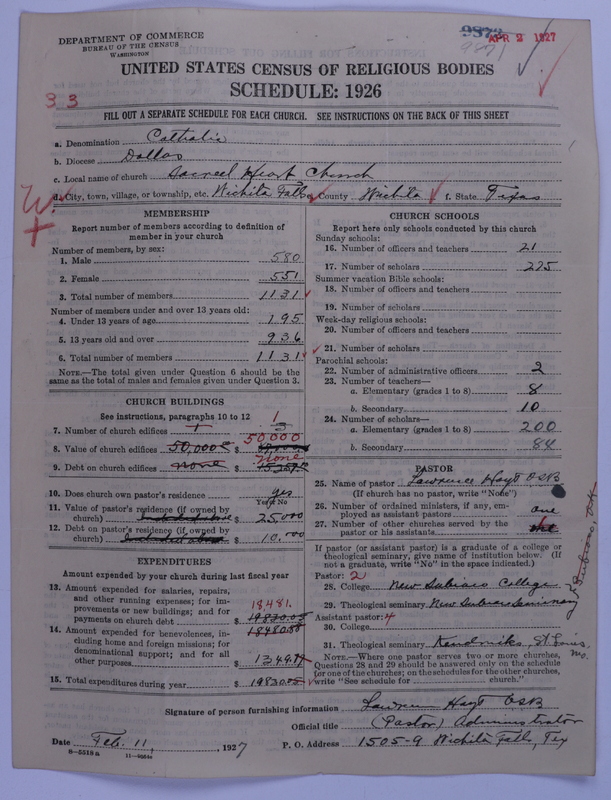 DEPARTMENT OF COMMERCE
BUREAU OF THE CENSUS
WASHINGTON
9871
APR 2 1927
UNITED STATES CENSUS OF RELIGIOUS BODIES
SCHEDULE: 1926
33
FILL OUT A SEPARATE SCHEDULE FOR EACH CHURCH. SEE INSTRUCTIONS ON THE BACK OF THIS SHEET
a. Denomination Catholic
b. Diocese Dallas
c. Local name of church Sacred Heart Church
d. City, town, village, or township, etc. Wichita Falls e. County Wichita f. State Texas
MEMBERSHIP
Report number of members according to definition of member in your church
Number of members, by sex:
1. Male 580
2. Female 551
3. Total number of members 1131
Number of members under and over 13 years old:
4. Under 13 years of age 195
5. 13 years old and over 936
6. Total number of members 1131
NOTE.—The total given under Question 6 should be the same as the total of males and females given under Question 3.
CHURCH BUILDINGS
See instructions, paragraphs 10 to 12
7. Number of church edifices 1 3
1
8. Value of church edifices 50,000 $
50000
9. Debt on church edifices none $
none
10. Does church own pastor's residence yes
Yes or No
11. Value of pastor's residence (if owned by church) $ 25,000
12. Debt on pastor's residence (if owned by church) $ 10,000
EXPENDITURES
Amount expended by your church during last fiscal year
13. Amount expended for salaries, repairs, and other running expenses; for improvements or new buildings; and for payments on church debt $ 19830.05
18481.
14. Amount expended for benevolences, including home and foreign missions; for denominational support; and for all other purposes $ 1349.17
15. Total expenditures during year $ 19830.05
CHURCH SCHOOLS
Report here only schools conducted by this church
Sunday schools:
16. Number of officers and teachers 21
17. Number of scholars 225
Summer vacation Bible schools:
18. Number of officers and teachers
19. Number of scholars
Week-day religious schools:
20. Number of officers and teachers
21. Number of scholars
Parochial schools:
22. Number of administrative officers 2
23. Number of teachers—
a. Elementary (grades 1 to 8) 8
b. Secondary 10
24. Number of scholars—
a. Elementary (grades 1 to 8) 200
b. Secondary 84
PASTOR
25. Name of pastor Lawrence Hoyt OSB
(If church has no pastor, write "None")
26. Number of ordained ministers, if any, employed as assistant pastors one
27. Number of other churches served by the pastor or his assistants
If pastor (or assistant pastor) is a graduate of a college or theological seminary, give name of institution below. (If not a graduate, write "No" in the space indicated.)
Pastor: 2
28. College New Subiaco College
29. Theological seminary New Subiaco Seminary
Subiaco, Ark
Assistant pastor: 4
30. College
31. Theological seminary Kendricks, St Louis, Mo.
NOTE.—Where one pastor served two or more churches, Questions 28 and 29 should be answered only on the schedule for one of the churches; on the schedules for the other churches, write "See schedule for church."
Signature of person furnishing information Lawrence Hoyt OSB
Official title (Pastor) Administrator
Date Feb. 11, 1927 P. O. Address 1505-9 Wichita Falls, Tex
8-5519a